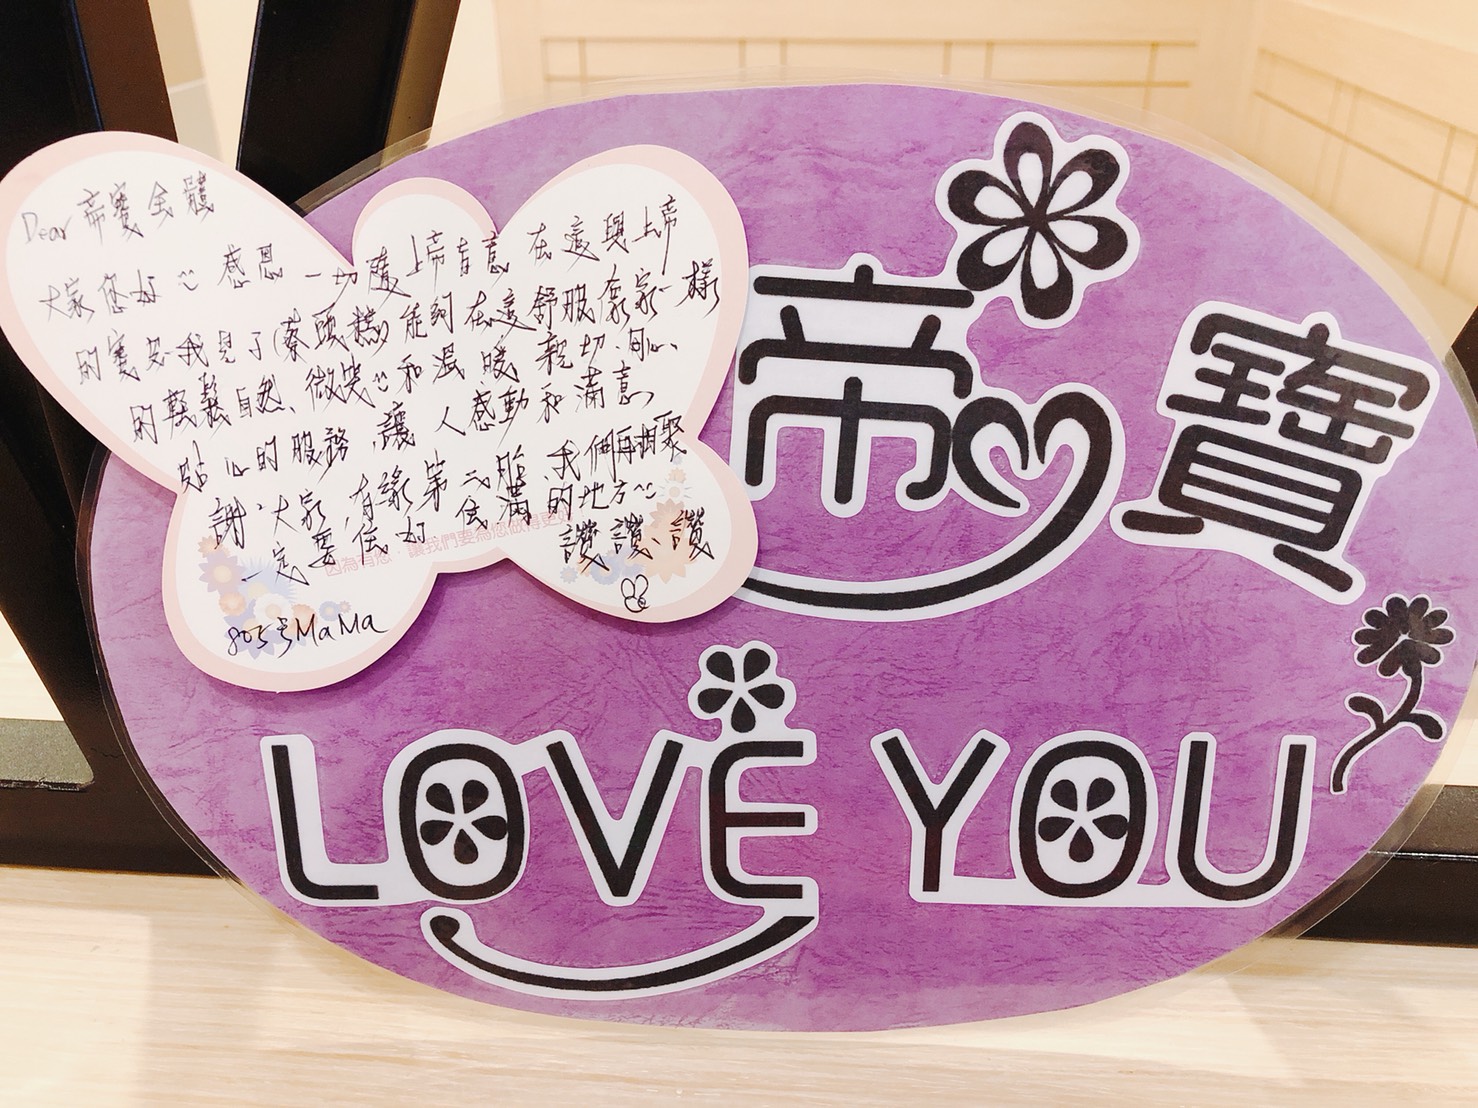 Dear 帝寶全體
大家您好 感恩 一切隨上帝旨意 在這與上帝
的寶宓我見了(蔡頭糕)能夠在這舒服像家一樣
的輕鬆自然、微笑 和溫暖 親切、用心、
貼心的服務,讓人感動和滿意,
謝、大家,有緣第二胎 我們再相聚
一定要住好 住滿的地方
讚讚、讚
因為有您,讓我們要為您做得更好
805号MaMa
帝寶
LOVE YOU